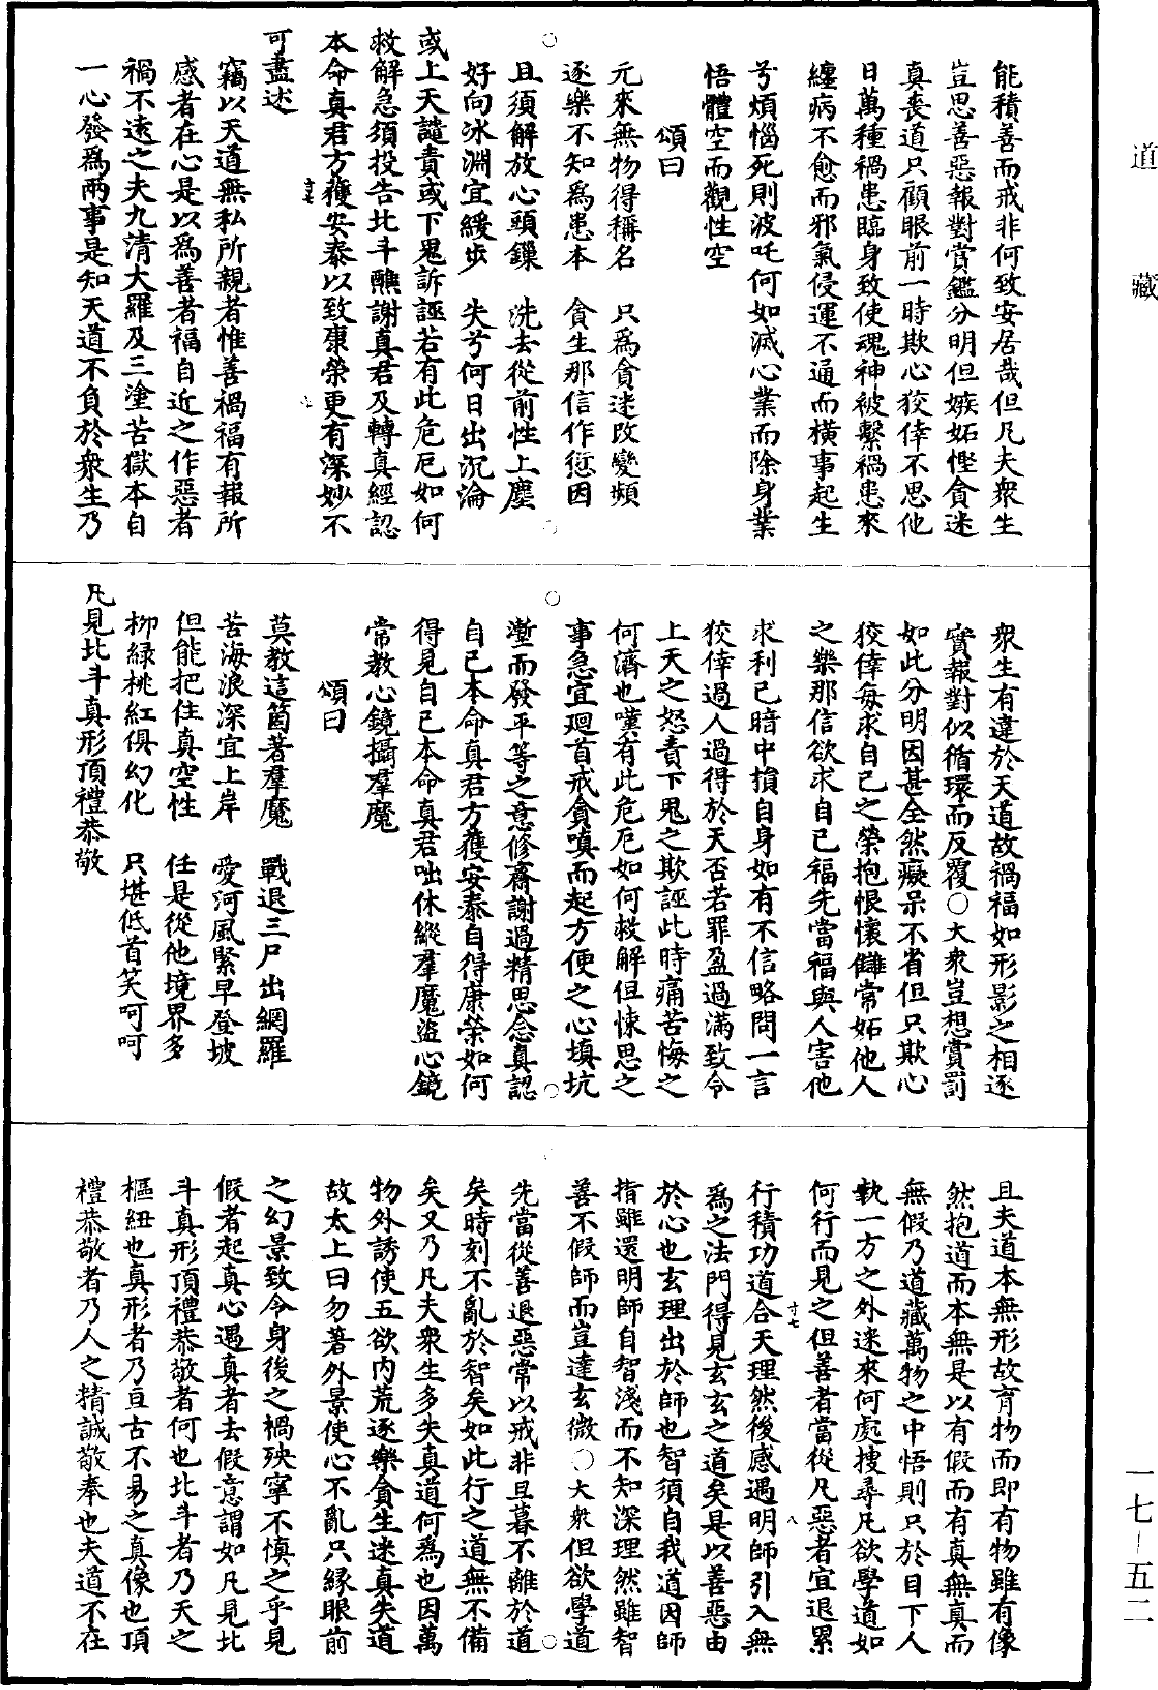 道藏
能積善而戒非何致安居哉但凡夫衆生
豈思善惡報對賞鑑分明但嫉妬慳貪迷
真喪道只顧眼前一時欺心狡倖不思他
日萬種禍患臨身致使魂神被繫禍患來
纏病不愈而邪氣侵運不通而橫事起生
兮煩惱死則波吒何如滅心業而除身業
悟體空而觀性空
頌曰
元來無物得稱名　只爲貪迷改變頻
逐樂不知爲患本　貪生那信作愆因
且須解放心頭鏁　洗去從前性上塵
好向冰淵宜緩步　失兮何日出沉淪
或上天譴責或下鬼訴誣若有此危厄如何
救解急須投告北斗醮謝真君及轉真經認
本命真君方獲安泰以致康榮更有深妙不
可盡述
竊以天道無私所親者惟善禍福有報所
感者在心是以爲善者福自近之作惡者
禍不遠之夫九清大羅及三塗苦獄本自
一心發爲兩事是知天道不負於衆生乃
衆生有違於天道故禍福如形影之相逐
實報對似循環而反覆○大衆豈想賞罰
如此分明因甚全然癡呆不省但只欺心
狡倖每求自己之榮抱恨懷讎常妬他人
之樂那信欲求自己福先當福與人害他
求利己暗中損自身如有不信略問一言
狡倖過人過得於天否若罪盈過滿致令
上天之怒責下鬼之欺誣此時痛苦悔之
何濟也嘆有此危厄如何救解但悚思之
事急宜廻首戒貪嗔而起方便之心填坑
壍而發平等之意修齋謝過精思念真認
自己本命真君方獲安泰自得康榮如何
得見自己本命真君咄休縱羣魔盜心鏡
常教心鏡攝羣魔
頌曰
莫教這箇著羣魔　戰退三尸出網羅
苦海浪深宜上岸　愛河風緊早登坡
但能把住真空性　任是從他境界多
柳綠桃紅俱幻化　只堪低首笑呵呵
凡見北斗真形頂禮恭敬
且夫道本無形故育物而即有物雖有像
然抱道而本無是以有假而有真無真而
無假乃道藏萬物之中悟則只於目下人
執一方之外迷來何處搜尋凡欲學道如
何行而見之但善者當從凡惡者宜退累
行積功道合天理然後感遇明師引入無
爲之法門得見玄玄之道矣是以善惡由
於心也玄理出於師也智須自我道因師
指雖還明師自智淺而不知深理然雖智
善不假師而豈達玄微○大衆但欲學道
先當從善退惡常以戒非旦暮不離於道
矣時刻不亂於智矣如此行之道無不備
矣又乃凡夫衆生多失真道何爲也因萬
物外誘使五欲內荒逐樂貪生迷真失道
故太上曰勿著外景使心不亂只緣眼前
之幻景致令身後之禍殃寧不慎之乎見
假者起真心遇真者去假意謂如凡見北
斗真形頂禮恭敬者何也北斗者乃天之
樞紐也真形者乃亘古不易之真像也頂
禮恭敬者乃人之精誠敬奉也夫道不在
一七-五二